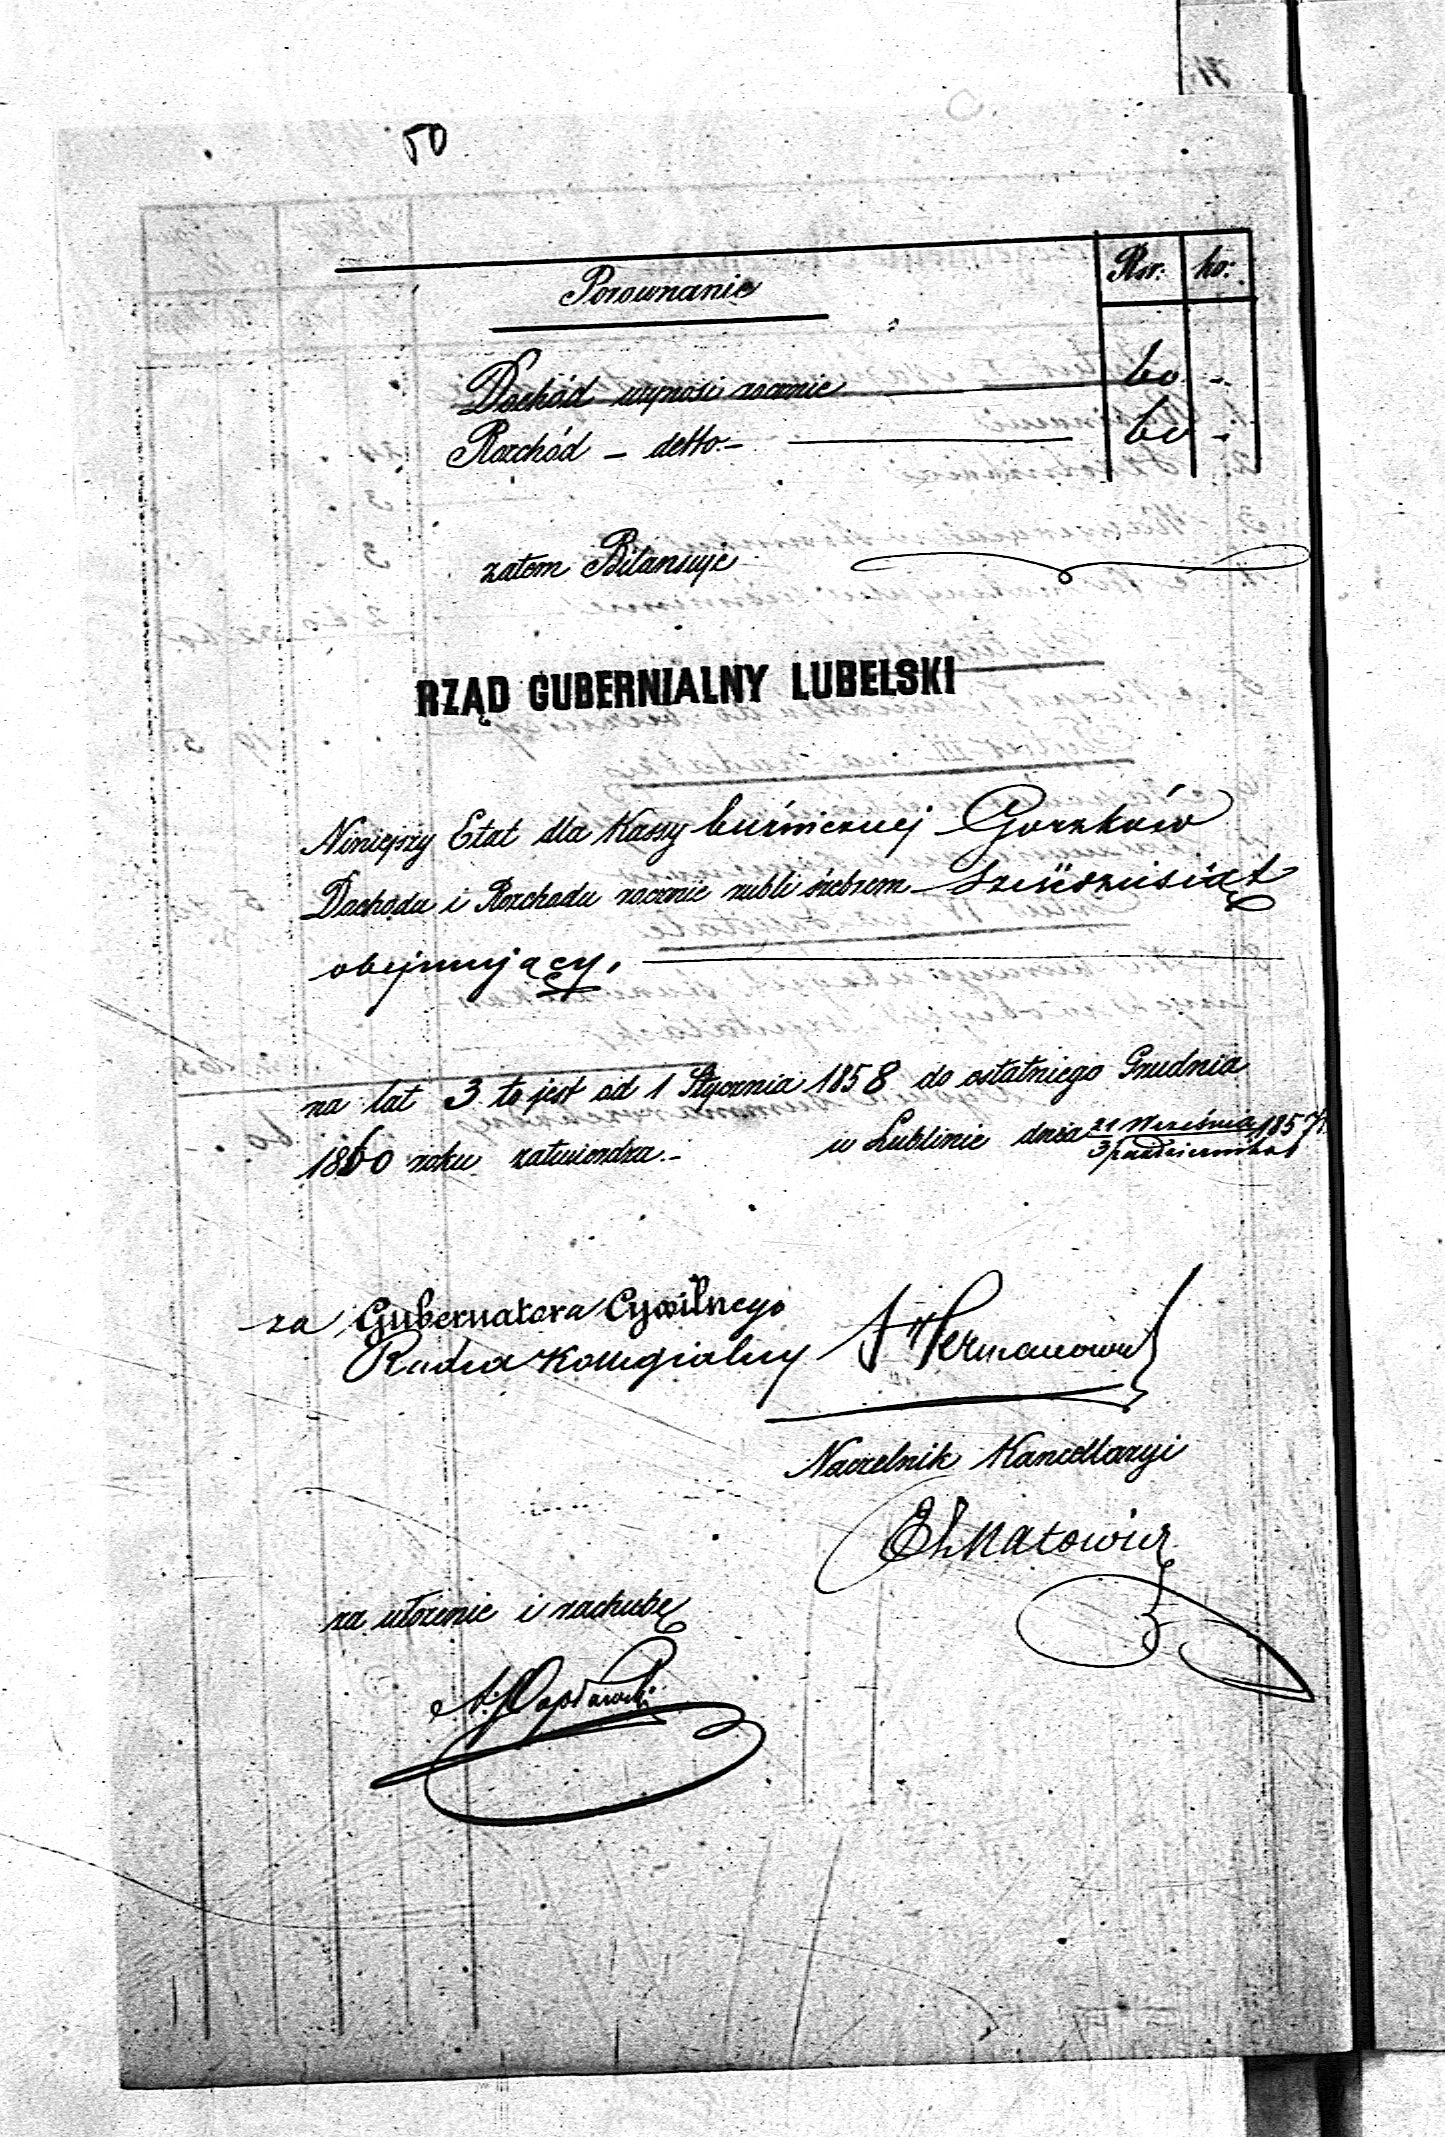 50
Porownanie
Rsr: ko:
Dochód wynosi rocznie 60 -
Rozchód - detto - 60 -
zatem Bilansuje
RZĄD GUBERNIALNY LUBELSKI
Niniejszy Etat dla Kassy bużnicznej Gorzków
Dochodu i Rozchodu rocznie rubli srebrem sześćdziesiąt
obejmujący,
na lat 3 to jest od 1 Stycznia 1858 do ostatniego Grudnia
1860 roku zatwierdza.- w Lublinie dnia 21 Września / 3 Października 1857 r.
za Gubernatora Cywilnego
Radca Kollegialny
Naczelnik Kancellaryi
za ułożenie i rachubę